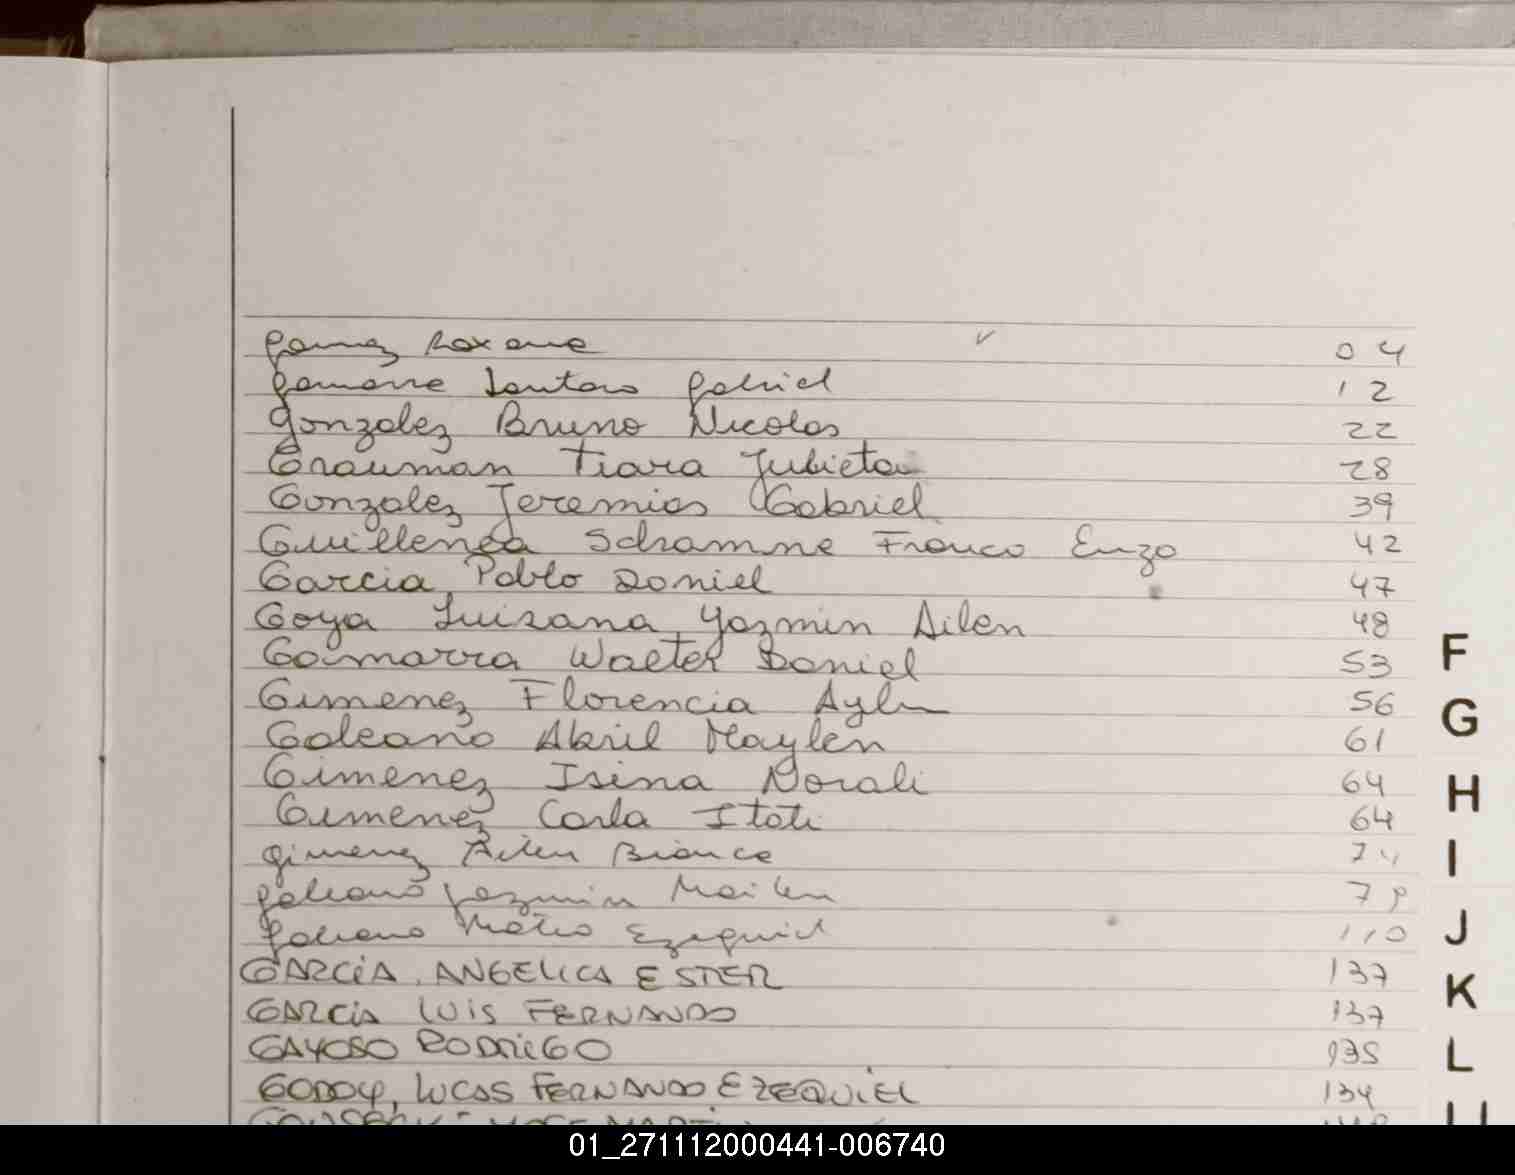 Gomez Roxane ✓ 04
Gamarre Santoro Gabriel 12
Gonzalez Bruno Nicolas 22
Grauman Tiara Julieta 28
Gonzalez Jeremias Gabriel 39
Guillenea Schamne Franco Enzo 42
Garcia Pablo Daniel 47
Goya Luisana Yazmin Ailen 48
Gamarra Walter Daniel 53
Gimenez Florencia Aylen 56
Galeano Abril Maylen 61
Gimenez Isina Norali 64
Gimenez Carla Itati 64
Gimenez Ailen Bianca
Galeano Yazmin Mailen 79
Galeano Mateo Ezequiel 110
GARCIA, ANGELICA ESTER 137
GARCIA LUIS FERNANDO 137
GAYOSO RODRIGO 135
GODOY, LUCAS FERNANDO EZEQUIEL 134
F
G
H
I
J
K
L
01_271112000441-006740